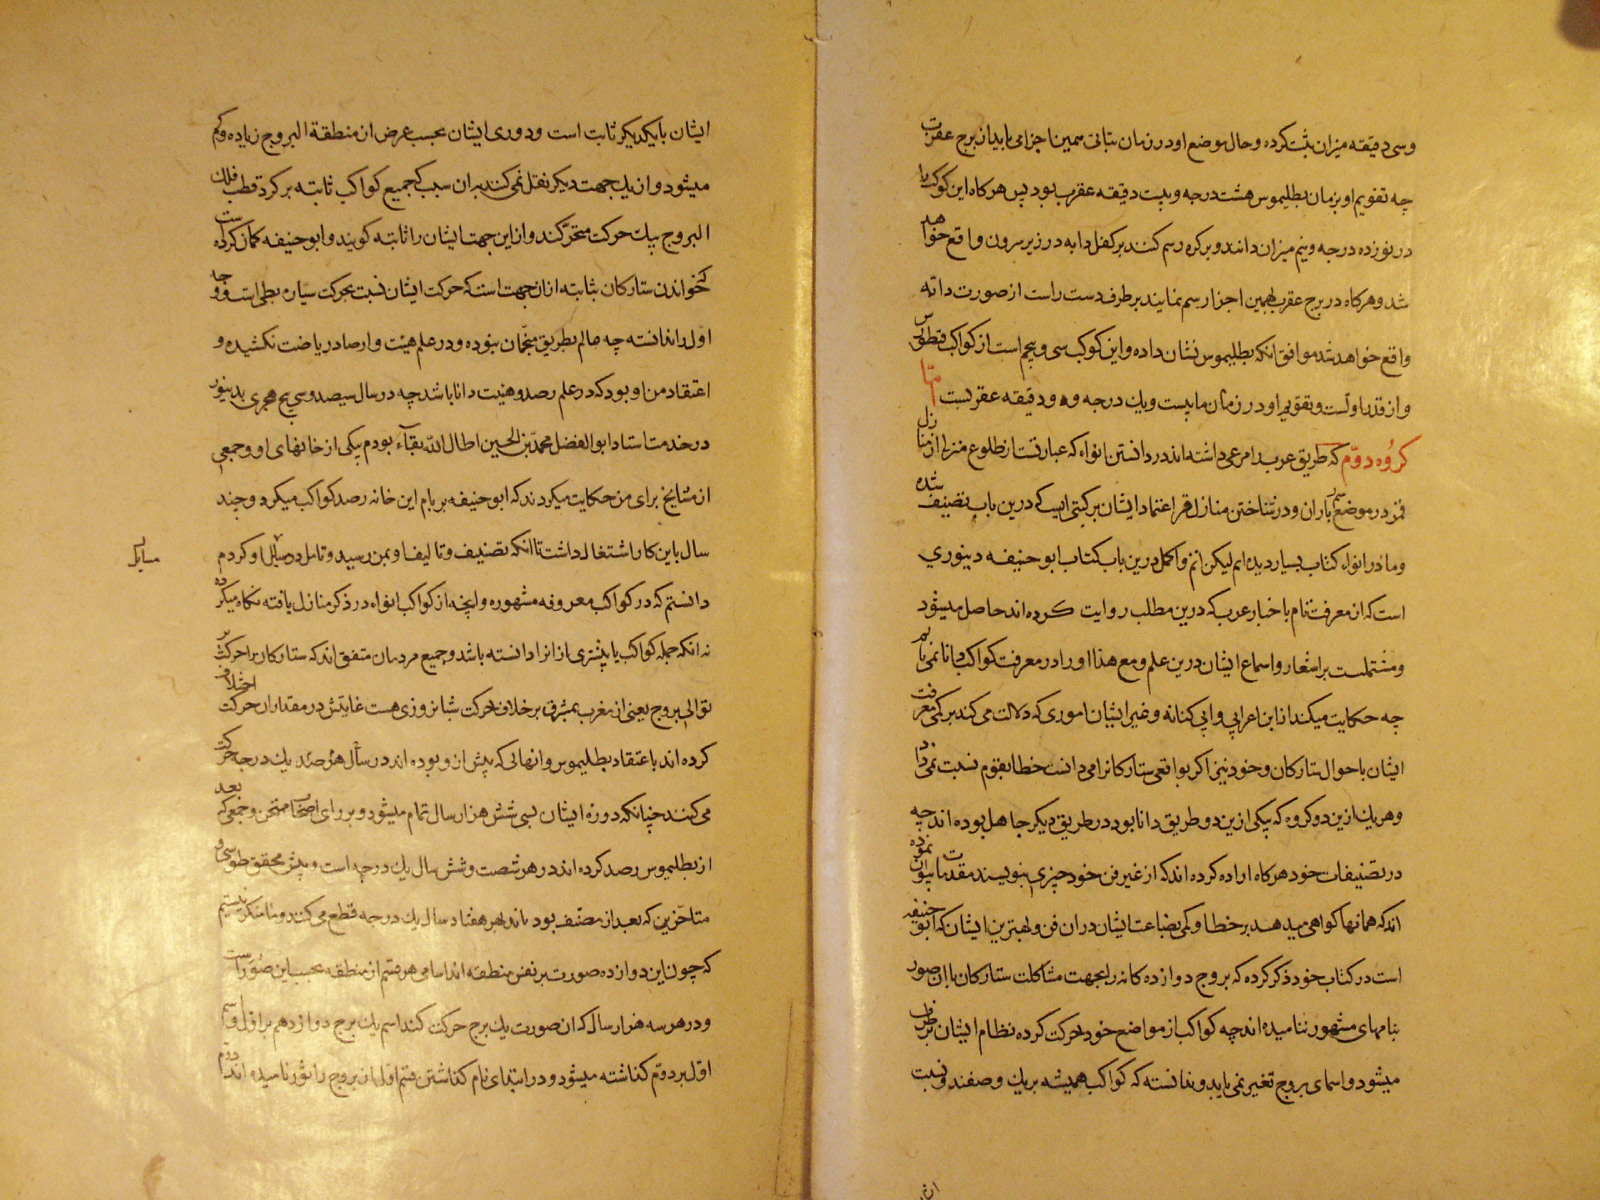 وسی دقیقه میزان ثبت کرده وحال موضع او در زمان بتانی همین اجزا می باید از برج عقرب
چه تقویم او بزمان بطلیموس هشت درجه وبیست دقیقه عقرب بود پس هرکاه این کوکب را
در نوزده درجه ونیم میزان دانند و برکره رسم کنند بر کفل دابه در زیر بیرون واقع خواهد
شد وهرکاه در برج عقرب بهمین اجزا رسم نمایند بر طرف دست راست از صورت دابه
واقع خواهد شد موافق انکه بطلیموس نشان داده واین کوکب سی وپنجم است از کواکب قنطورس
و از قدر اولست وتقویم او در زمان ما بیست ویک درجه وده ودقیقه عقربست اما
کروه دوم که طریق عرب را مرعی داشته اند در دانستن انواء که عبارتست از طلوع منزلی از منازل
قمر در موسم باران و در شناختن منازل قمر اعتماد ایشان بر کتبی است که درین باب تصنیف شده
وما در انواء کتاب بسیار دیده ایم لیکن اتم واکمل درین باب کتاب ابو حنیفه دینوری
است که از معرفت تام با خبار عرب که درین مطلب روایت کرده اند حاصل میشود
ومشتملست بر اشعار واسماع ایشان درین علم ومع هذا اورا در معرفت کواکب دانا نمی دانیم
چه حکایت میکند از ابن اعرابی وابی کنانه وغیر ایشان اموری که دلالت می کند بر کمی معرفت
ایشان باحوال ستارکان وخود نیز اکر بواقعی ستارکانرا می دانست خطا بقوم نسبت نمی داد
وهریک ازین دو کروه که یکی ازین دو طریق دانا بود در طریق دیکر جاهل بوده اند چه
در تصنیفات خود هرکاه اراده کرده اند که از غیر فن خود چیزی بنویسند مقدمات ایراد نموده
اند که همانها کواهی میدهد بر خطا وکمی بضاعت ایشان دران فن وبهترین ایشان که ابو حنیفه
است در کتاب خود ذکر کرده که بروج دوازده کانه را بجهت مشاکلت ستارکان با ان صور
بنامهای مشهور ننامیده اند چه کواکب از مواضع خود حرکت کرده نظام ایشان بر طرف
میشود واسمای بروج تغیر نمی یابد وندانسته که کواکب همیشه بریک وصفند ونسبت
ایشان بایکدیکر ثابت است و دوری ایشان بحسب عرض از منطقة البروج زیاده وکم
میشود و از یک جهت دیکر نقل نمی کنند بدان سبب که جمیع کواکب ثابته بر کرد قطب فلک
البروج بیک حرکت متحرکند و از این جهت ایشان را ثابته کویند و ابو حنیفه کمان کرده است
که خواندن ستارکان بثابته از ان جهت است که حرکت ایشان نسبت بحرکت سیاره بطی است و وجه
اول را ندانسته چه عالم بطریق منجمان نبوده و در علم هیئت وارصاد ریاضت نکشیده و
اعتقاد من او بود که در علم رصد وهیئت دانا باشد چه در سال سیصد وسی پنج هجری بدینور
در خدمت استاد ابو الفضل محمد بن الحسین اطال الله بقاءه بودم بیکی از خانهای او وجمعی
از مشایخ برای من حکایت میکردند که ابو حنیفه بر بام این خانه رصد کواکب میکرد وچند
سال باین کار اشتغال داشت تا انکه تصنیف وتالیفا وبمن رسید وتامل در مسایل او کردم
مسایل
دانستم که در کواکب معروفه مشهوره وانچه از کواکب انواء در ذکر منازل یافته نکاه میکرده
نه انکه جمله کواکب یا بیشتری از انرا دانسته باشد وجمیع مردمان متفق اند که ستارکان را حرکت بر
توالی بروج یعنی از مغرب بمشرق بر خلاف حرکت شبانروزی هست غایتش در مقدار ان حرکت اختلاف
کرده اند باعتقاد بطلیموس وانهائی که پیش از و بوده اند در سال هر صد یک درجه حرکت
می کنند چنانکه دوره ایشان بسی شش هزار سال تمام میشود و بر رای اصحاب ممتحن وجمعی که بعد
از بطلیموس رصد کرده اند در هر شصت وشش سال یک درجه است وپیش محقق طوسی و
متاخرین که بعد از مصنف بوده اند بهر هفتاد سال یک درجه قطع می کنند وما منکر نیستیم
که چون این دوازده صورت بر نفس منطقه اند اسامی هر قسم از منطقه بحسب این صورتست
و در هر سه هزار سال که ان صورت یک برج حرکت کند اسم یک برج دوازدهم بر اول واسم
اول بر دوم کذاشته میشود و در ابتدای نام کذاشتن قسم اول از بروج را ثور نامیده اند دوم را